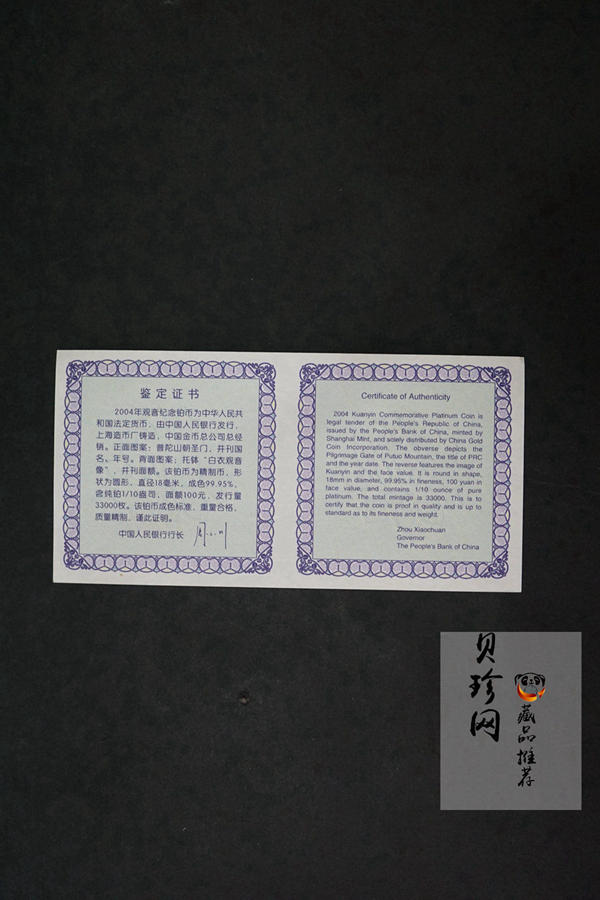 鉴定证书
2004年观音纪念铂币为中华人民共
和国法定货币，由中国人民银行发行，
上海造币厂铸造，中国金币总公司总经
销。正面图案：普陀山朝圣门，并刊国
名、年号。背面图案：托钵“白衣观音
像”，并刊面额。该铂币为精制币，形
状为圆形，直径18毫米，成色99.95%，
含纯铂1/10盎司，面额100元，发行量
33000枚。该铂币成色标准，重量合格，
质量精制，谨此证明。
中国人民银行行长
Certificate of Authenticity
2004 Kuanyin Commemorative Platinum Coin is
legal tender of the People's Republic of China,
issued by the People's Bank of China, minted by
Shanghai Mint, and solely distributed by China Gold
Coin Incorporation. The obverse depicts the
Pilgrimage Gate of Putuo Mountain, the title of PRC
and the year date. The reverse features the image of
Kuanyin and the face value. It is round in shape,
18mm in diameter, 99.95% in fineness, 100 yuan in
face value, and contains 1/10 ounce of pure
platinum. The total mintage is 33000. This is to
certify that the coin is proof in quality and is up to
standard as to its fineness and weight.
Zhou Xiaochuan
Governor
The People's Bank of China
贝珍网
藏品推荐